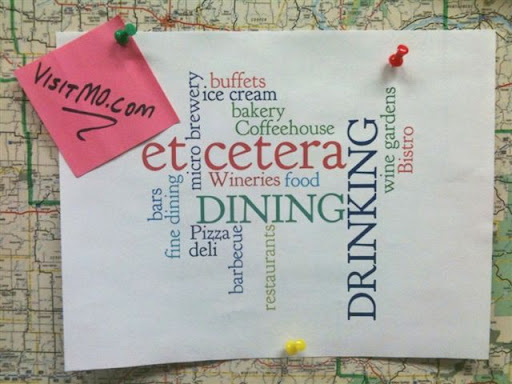 VISITMO.COM
buffets
ice cream
bakery
Coffeehouse
micro brewery
et cetera
Wineries food
DINING
DRINKING
wine gardens
Bistro
bars
fine dining
Pizza
deli
barbecue
restaurants